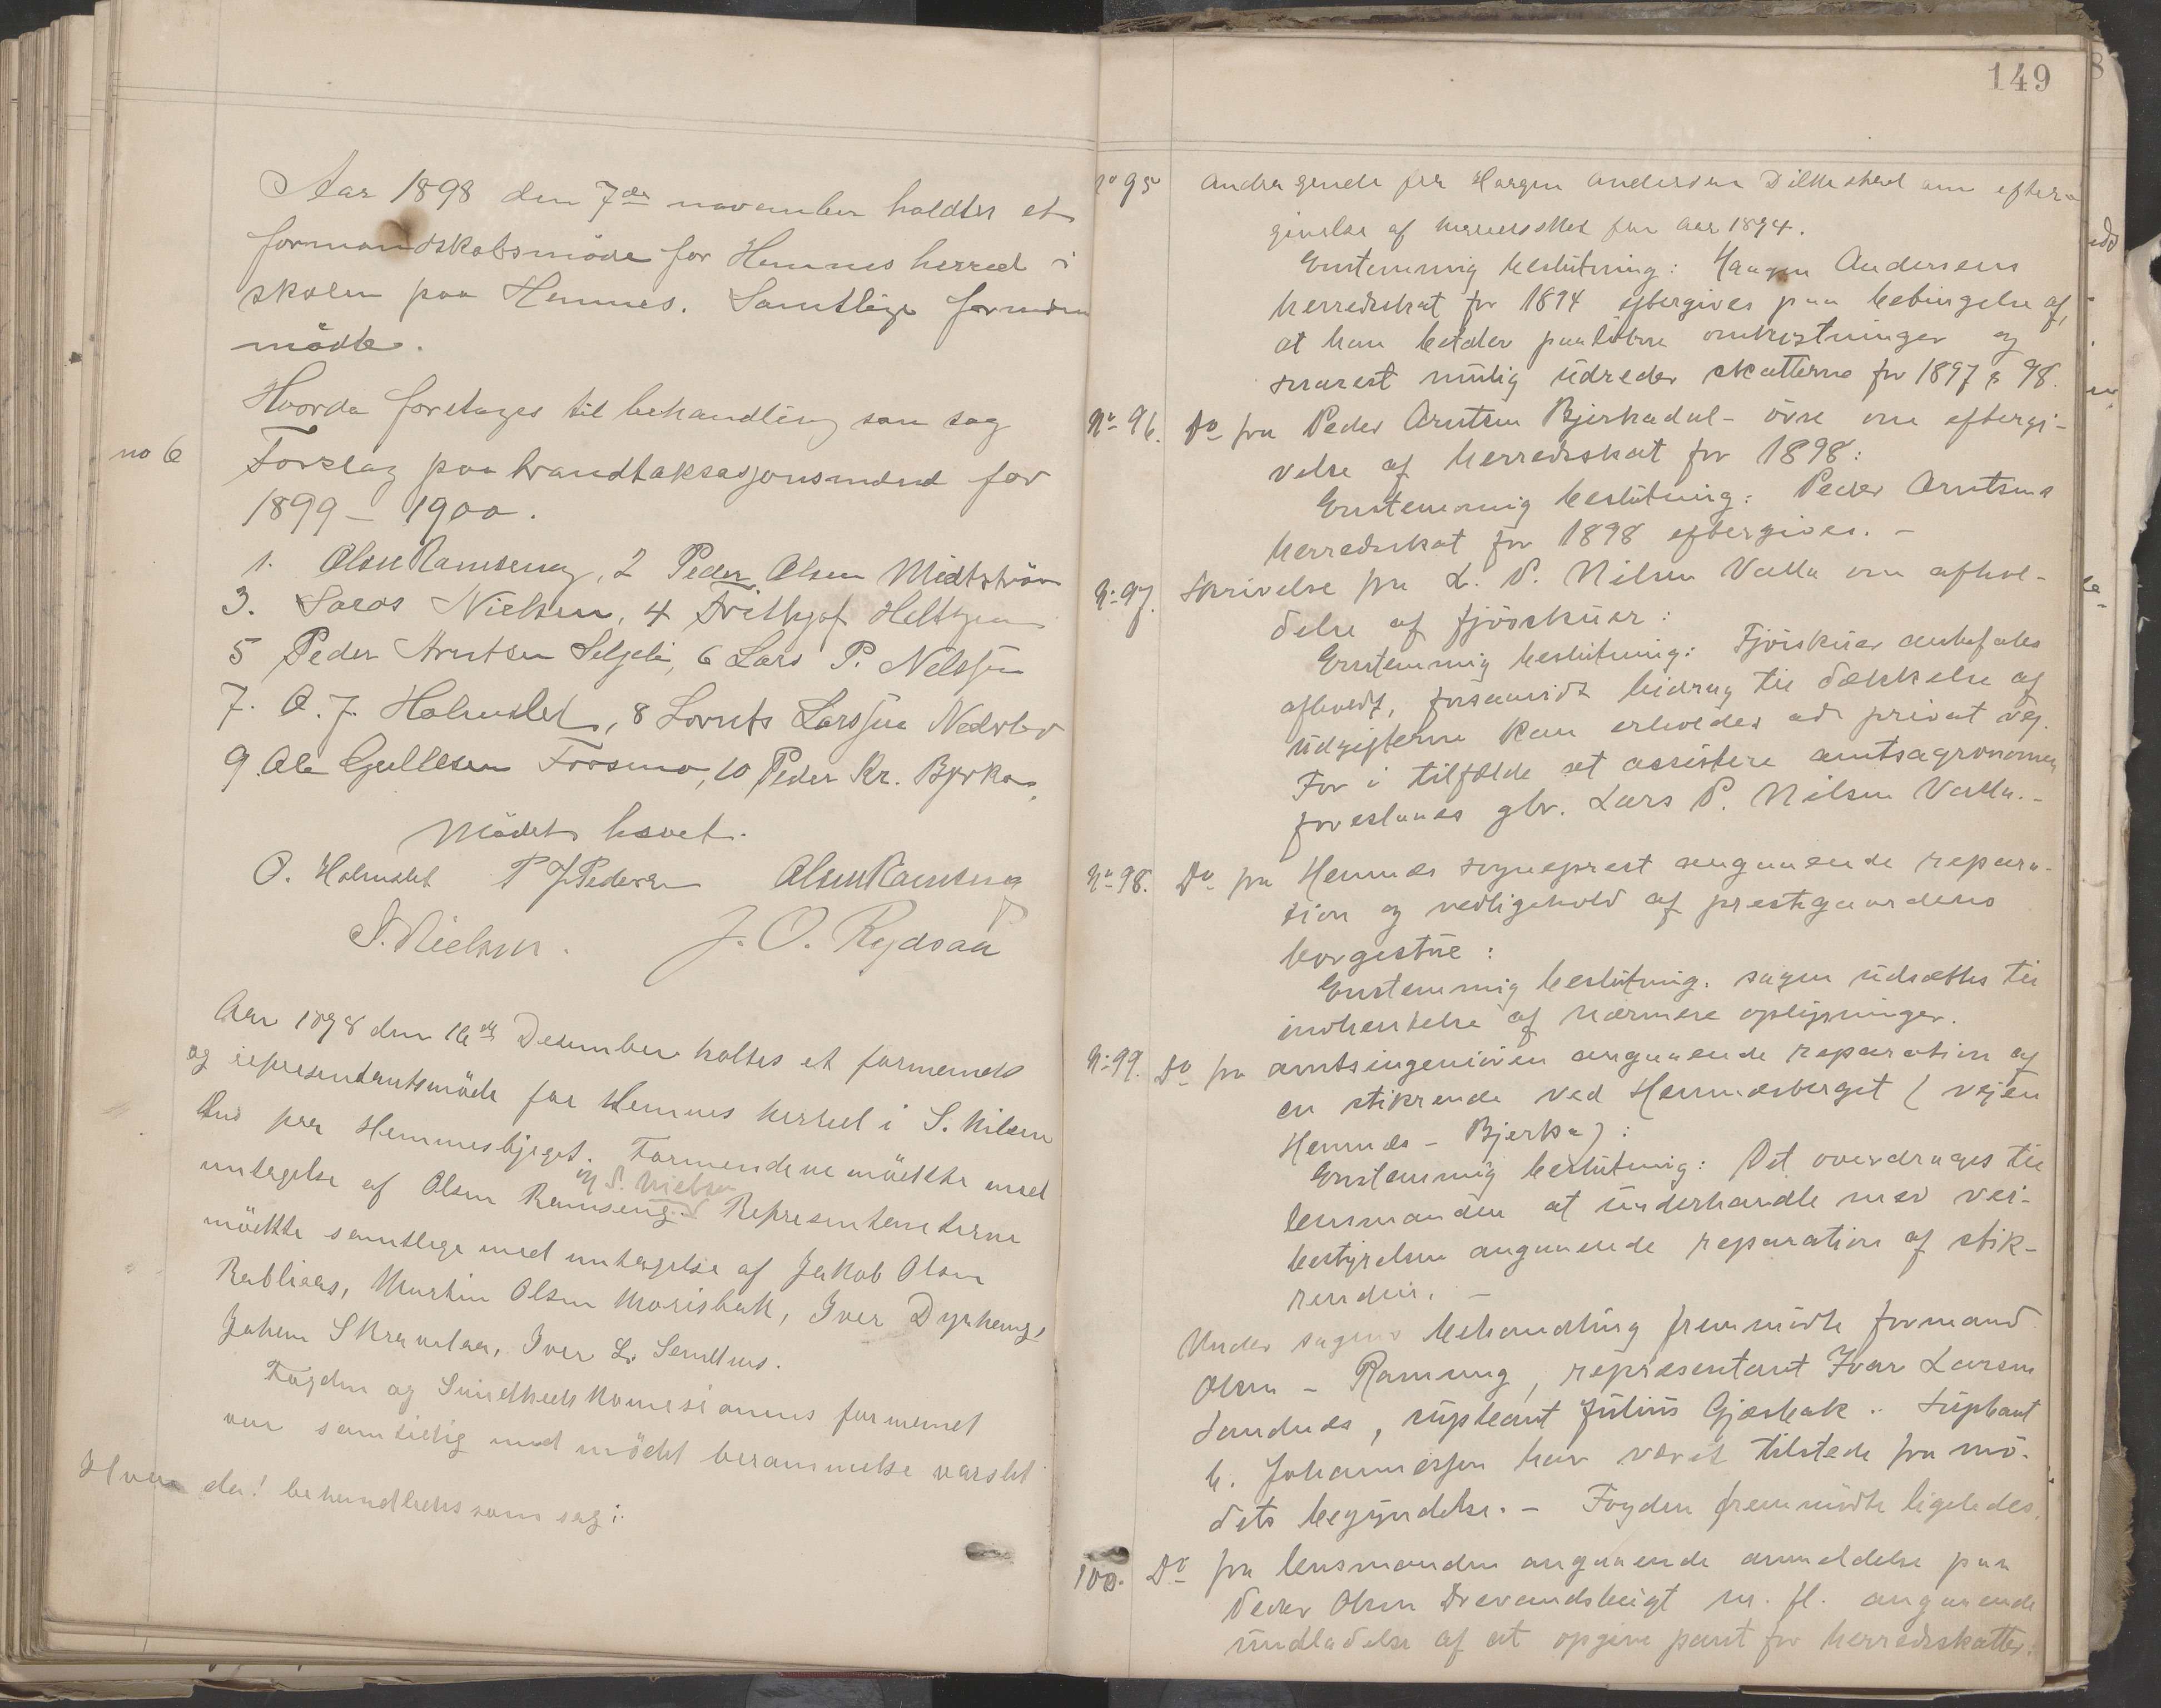 Aar 1898 den 7de november holdtes et
formandskabsmøde for Hemnes herred i
skolen paa Hemnes. Samtlige formænd
mødte.
Hvorda foretages til behandling som sag
no 6 Forslag paa brandtaksasjonsmænd for
1899 – 1900.
1. Olsen Ramseng, 2 Peder Olsen Midtstrøm
3. Saras Nielsen, 4 Frithjof Heltzen
5 Peder Arntsen Seljeli, 6 Lars P. Nelssen
7. O. J. Holmslet, 8 Lornts Larssen Nedrber
9. Ole Gullesen Forsmo, 10 Peder Kr. Bjerka,
Mødet hævet.
O. Holmslet P J Pedersen Olsen Ramseng
S. Nielsen. J. O. Rydsaa
Aar 1898 den 16de Desember holtes et formends
og representantsmøde for Hemnes herred i S. Nilsen
hus paa Hemmesbjeget. Formendene møctte med
untagelse af Olsen Ramseng. Representanterne
og S. Nielsen
møctte samtlege med untagelse af Jakob Olsen
Rabliaas, Martin Olsen Morisbak, Iver Dyrhaug,
Johan Skravlaa, Iver L. Sandnes.
Fogden og Sundheds Komisionens formand
var samtidig med mødet berammelse varslet
Hvor da! behandledes som sag:
149
No 95 Andragende fra Haagen Andersen Dilkestad om efter-
givelse af herredsskat for aar 1894.
Enstemmig beslutning: Haagen Andersens
herredsskat for 1894 eftergives paa betingelse af,
at han betaler paaløbne omkostninger og
snarest mulig udreder skatterne for 1897 & 98.
No 96. Do fra Peder Arntsen Bjerkadal-øvre om eftergi-
velse af herredsskat for 1898:
Enstemmig beslutning: Peder Arntsens
herredsskat for 1898 eftergives. –
No 97. Skrivelse fra L. P. Nilsen Valla om afhol-
delse af fjøsskuer:
Enstemmig beslutning: Fjøsskuer anbefales
afholdt, forsaavidt bidrag til dækkelse af
udgifterne kan erholdes ad privat vej.
For i tilfælde at assistere amtsagronomen
foreslaaes gbr. Lars P. Nilsen Valla. –
No 98. Do fra Hemnæs sogneprest angaaende repara-
tion og vedligehold af prestegaardens
borgestue:
Enstemmig beslutning. sagen udsættes til
indhentelse af nærmere oplysninger.
No 99. Do fra amtsingeniøren angaaende reparation af
en stikrende ved Hemnæsberget (vejen
Hemnæs – Bjerka):
Enstemmig beslutning: Det overdrages til
lensmanden at underhandle med vei-
bestyrelsen angaaende reparation af stik-
renden. –
Under sagens behandling fremmødte formand
Olsen – Ramseng, repræsentant Ivar Larsen
Sandnæs, supleant Julius Gjæsbak. Supleant
C. Johannesen har været tilstede fra mø-
dets begyndelse. – Fogden fremmødte ligeledes.
100. Do fra lensmanden angaaende anmeldelse paa
Peder Olsen Drevandsbugt m. fl. angaaende
undladelse af at opgive pant for herredsskatter: